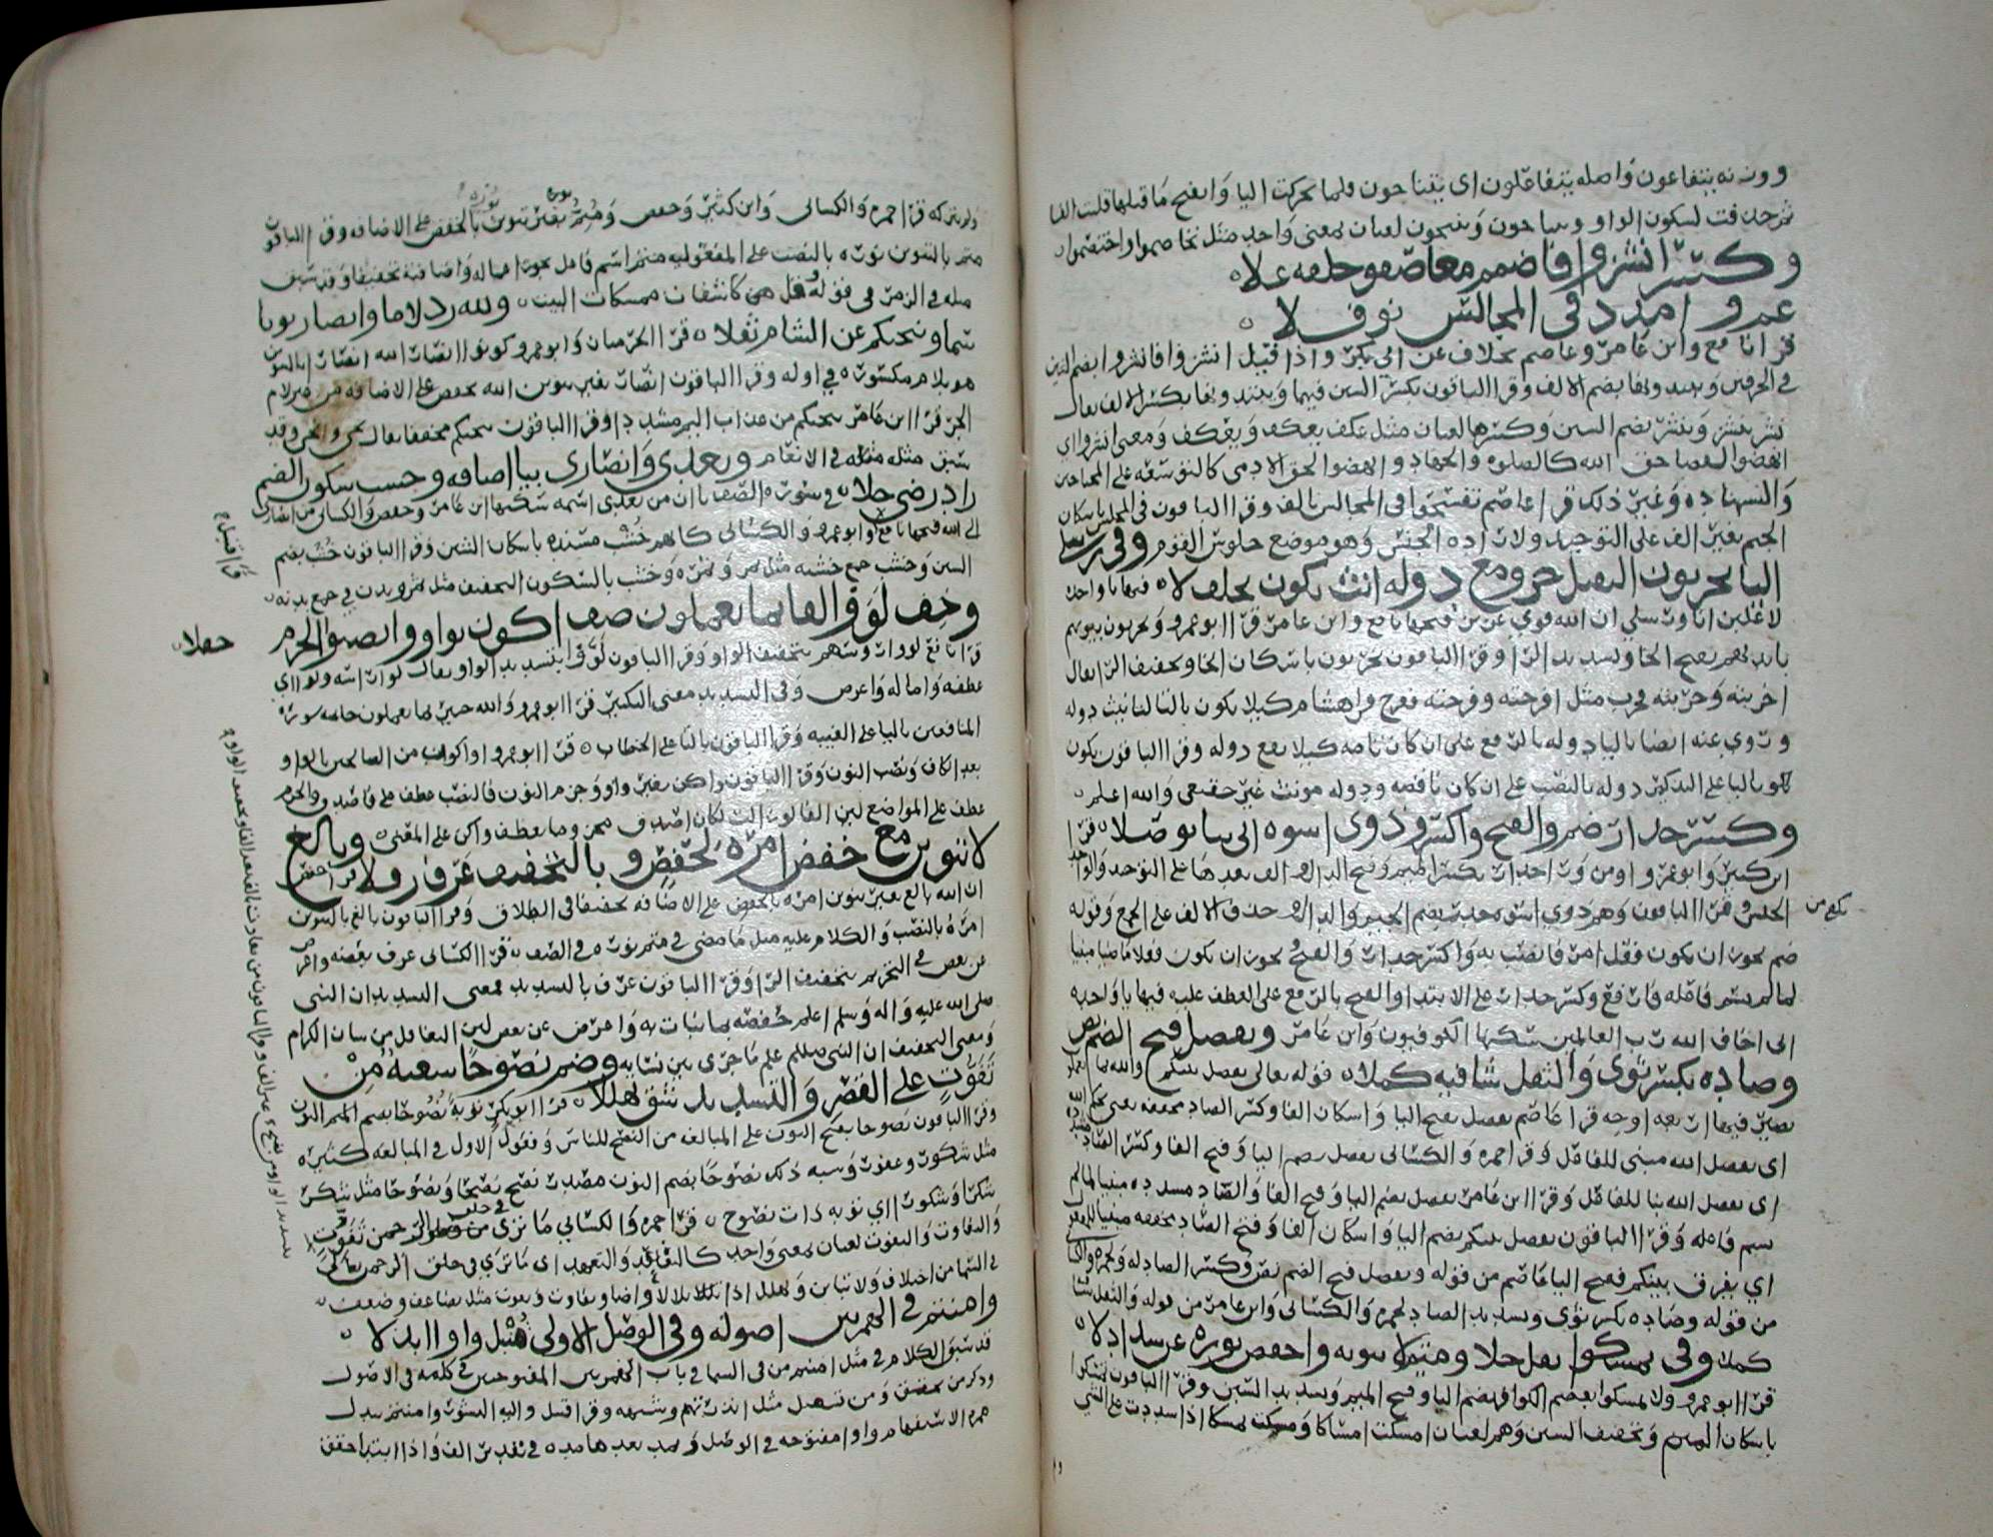 ووزنه يتفاعون واصله يتفاعلون اى يتناجون فلما تحركت اليا وانفتح ما قبلها قلبت الفا
ثم حذفت لسكون الواو ويتناجون وينتجون لغتان بمعنى واحد مثل تخاصموا واختصموا
وكسر انشزوا فاضمم معا صفو خلفه علا
عم و امدد فى المجالس نوفلا
قرا نافع وابن عامر وعاصم بخلاف عن ابى بكر واذا قيل انشزوا فانشزوا بضم الشين
فى الحرفين ويبتدونها بضم الالف وقرا الباقون بكسر الشين فيهما ويبتدونها بكسر الالف يقال
نشز ينشز وينشز بضم الشين وكسرها لغتان مثل عكف يعكف ويعكف ومعنى انشزوا اى
انهضوا لقضا حق الله كالصلوه والجهاد وانهضوا لحق الادمى كالتوسعه على المحتاجين
والشهاده وغير ذلك قرا عاصم تفسحوا فى المجالس بالف وقرا الباقون فى المجلس باسكان
الجيم بغير الف على التوحيد ولاراده الجنس وهو موضع جلوس القوم وفى رسلى
اليا يخربون الثقيل حز ومع دوله انث يكون بخلف لا فيها يا واحده
لاغلبن انا ورسلى ان الله قوى عزيز فتحها نافع وابن عامر قرا ابو عمرو يخربون بيوتهم
بايديهم بفتح الخا وتشديد الرا وقرا الباقون يخربون باسكان الخا وتخفيف الرا يقال
اخربته وخربته فخرب مثل افرحته وفرحته ففرح قرا هشام كيلا تكون بالتا لتانيث دوله
وروى عنه ايضا باليا دوله بالرفع على ان كان تامه كيلا يقع دوله وقرا الباقون يكون
كلهم باليا على التذكير دوله بالنصب على ان كان ناقصه ودوله مونث غير حقيقى والله اعلم
وكسر جدار ضم والفتح واكسروا ذوى اسوه انى بيا توصلا قرا
ابن كثير وابو عمرو او من ورا جدار بكسر الجيم وفتح الدال والف بعدها على التوحيد والواحد
الجنس وقرا الباقون وهم ذوى اسوه جدر بضم الجيم والدال وحذف الالف على الجمع وقوله
ضم يجوز ان يكون فعل امر فانتصب به واكسر جدار والفتح يجوز ان يكون فعلا ماضيا مبنيا
لما لم يسم فاعله فارتفع وكسر جدار على الابتدا والفتح بالرفع على العطف عليه فيها يا واحده
انى اخاف الله رب العالمين سكنها الكوفيون وابن عامر ويفصل فتح الضم نص
وصاده بكسر ثوى والثقل شافيه كملا قوله تعالى يفصل بينكم والله بما تعملون
بصير فيها اربعه اوجه قرا عاصم يفصل بفتح اليا واسكان الفا وكسر الصاد مخففه
اى يفصل الله مبنى للفاعل وقرا حمزه والكسائى يفصل بضم اليا وفتح الفا وكسر الصاد
اى يفصل الله بنا للفاعل وقرا ابن عامر يفصل بضم اليا وفتح الفا والصاد مشدده مبنيا لما لم
يسم فاعله وقرا الباقون يفصل بينكم بضم اليا واسكان الفا وفتح الصاد مخففه مبنيا للمفعول
اي يفرق بينكم ففتح اليا عاصم من قوله ويفصل فتح الضم نص وكسر الصاد له ولحمزه والكسائى
من قوله وصاده بكسر ثوى وتشديد الصاد لحمزه والكسائى وابن عامر من قوله والثقل شافيه
كملا وفى تمسكوا ثقل حلا ومتم لا تنونه واخفض نوره عن شذا دلا
قرا ابو عمرو ولا تمسكوا بعصم الكوافر بضم اليا وفتح الميم وتشديد السين وقرا الباقون تمسكوا
باسكان الميم وتخفيف السين وهم لغتان امسكت امساكا ومسكت تمسكا اذا شددت على الشى
تكون من
دلو بنى كه قرا حمزه والكسائى وابن كثير وحفص ومتم بغير تنوين نوره بالخفض على الاضافه وقرا الباقون
متم بالتنوين نوره بالنصب على المفعوليه متم اسم فاعل يجوز اعماله واضافته تخفيفا وقد سبق
مثله فى الزمر فى قوله هل هن كاشفات ممسكات البيت ولله زد لاما وانصار نونا
سما وتنجيكم عن الشام ثقلا قرا الحرميان وابو عمرو كونوا انصارا لله انصارا بالتنوين
هو بلام مكسوره فى اوله وقرا الباقون انصار بغير تنوين الله بخفض على الاضافه من غير لام
الجر قرا ابن عامر تنجيكم من عذاب اليم مشددا وقرا الباقون تنجيكم مخففا يقال نجى وانجى وقد
سبق مثله مثقله فى الانعام وبعدى وانصارى بيا اضافه وخشب سكون الضم
زاد رضى حلا فى سوره الصف ياان من بعدى اسمه سكنها ابن عامر وحفص والكسائى من انصارى
الى الله فتحها نافع وابو عمرو والكسائى كانهم خشب مسنده باسكان الشين وقرا الباقون خشب بضم
السين وخشب جمع خشبه مثل ثمر وثمره وخشب بالسكون التخفيف مثل ثمر وبدن فى جمع بدنه
وخف لووا الفا بما يعملون صف اكون بواو وانصبوا الجزم
حفلا
قرا نافع لووا رءوسهم بتخفيف الواو وقرا الباقون لووا بتشديد الواو يقال لووا راسه ولووا اى
عطفه واماله واعرض وفى التشديد معنى التكثير قرا ابو عمرو والله خبير بما يعملون خاتمه سوره
المنافقين باليا على الغيبه وقرا الباقون بالتا على الخطاب قرا ابو عمرو واكون من الصالحين بالواو
بعد الكاف ونصب النون وقرا الباقون واكن بغير واو وجزم النون فالنصب عطف على فاصدق والجزم
عطف على الموضع لان الفا لو زالت لكان اصدق مجزوما عطف واكن على المعنى وبالغ
لا تنوين مع خفض امره لحفص وبالتخفيف عرف رفلا قرا حفص
ان الله بالغ بغير تنوين امره بالخفض على الاضافه تخفيفا فى الطلاق وقرا الباقون بالغ بالتنوين
امره بالنصب والكلام عليه مثل ما مضى فى متم نوره فى الصف قرا الكسائى عرف بعضه واعرض
عن بعض فى التحريم بتخفيف الرا وقرا الباقون عرف بالتشديد فمعنى التشديد ان النبى
صلى الله عليه واله وسلم اعلم حفصه بما نبات به واعرض عن بعض لان التغافل من شان الكرام
ومعنى التخفيف ان النبى صللم علم ما جرى بين نسايه وضم نصوحا شعبه من
تفوت على القصر والتشديد شق تهللا قرا ابو بكر توبه نصوحا بضم النون
وقرا الباقون نصوحا بفتح النون على المبالغه من النصح للناس وفعول الاول فى المبالغه كثيره
مثل شكور وغفور وشبه ذلك نصوحا بضم النون مصدر نصح نصحا ونصوحا مثل شكر
شكرا وشكورا اي توبه ذات نصوح قرا حمزه والكسائي ما ترى فى خلق الرحمن من تفوت
والتفاوت والتفوت لغتان بمعنى واحد كالتعاهد والتعهد اى ما ترى فى خلق الرحمن تعالى
فى السما من اختلاف ولا تباين وتهلل اذا تلالا واضا وتفاوت وتفوت مثل تضاعف وضعف
وامنتم فى الهمزتين اصوله وفى الوصل الاولى قنبل واوا ابدلا
قد سبق الكلام فى مثل امنتم من فى السما فى باب الهمزتين المفتوحتين فى كلمه فى الاصول
وذكر من تحقق ومن تسهل مثل انذرتهم وشبهه وقرا قنبل واليه النشور وامنتم ببدل
همزه الاستفهام واوا مفتوحه فى الوصل وبمد بعدها مده فى تقدير الف واذا ابتدا حقق